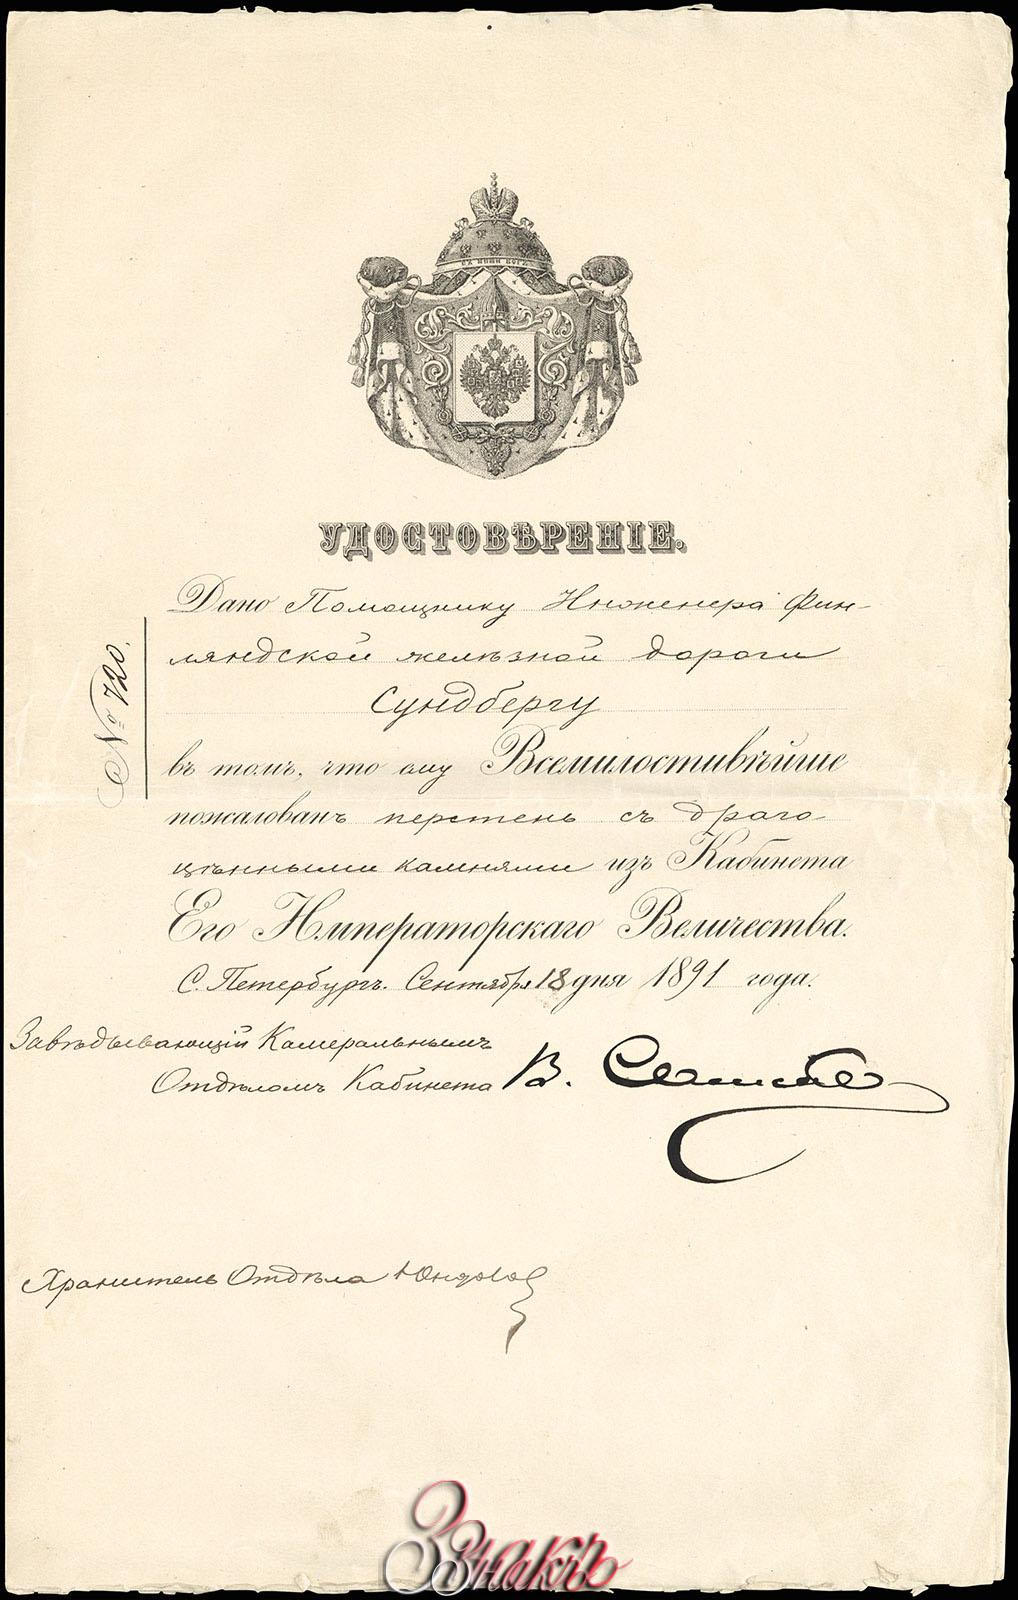 СЪ НАМИ БОГЪ
УДОСТОВѢРЕНІЕ.
№ 720.
Дано Помощнику Инженера Фин-
ляндской желѣзной дороги
Сундбергу
въ томъ, что ему Всемилостивѣйше
пожалованъ перстень съ драго-
цѣнными камнями изъ Кабинета
Его Императорскаго Величества.
С. Петербургъ. Сентября 18 дня 1891 года.
Завѣдывающій Камеральнымъ
Отдѣломъ Кабинета В.
Хранитель Отдѣла
Знакъ